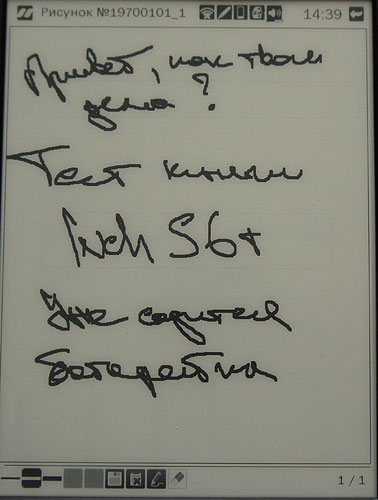 Рисунок №19700101_1 14:39
Привет, как твои
дела?
Тест книги
Inch S6+
Уже садится
батарейка
1 / 1